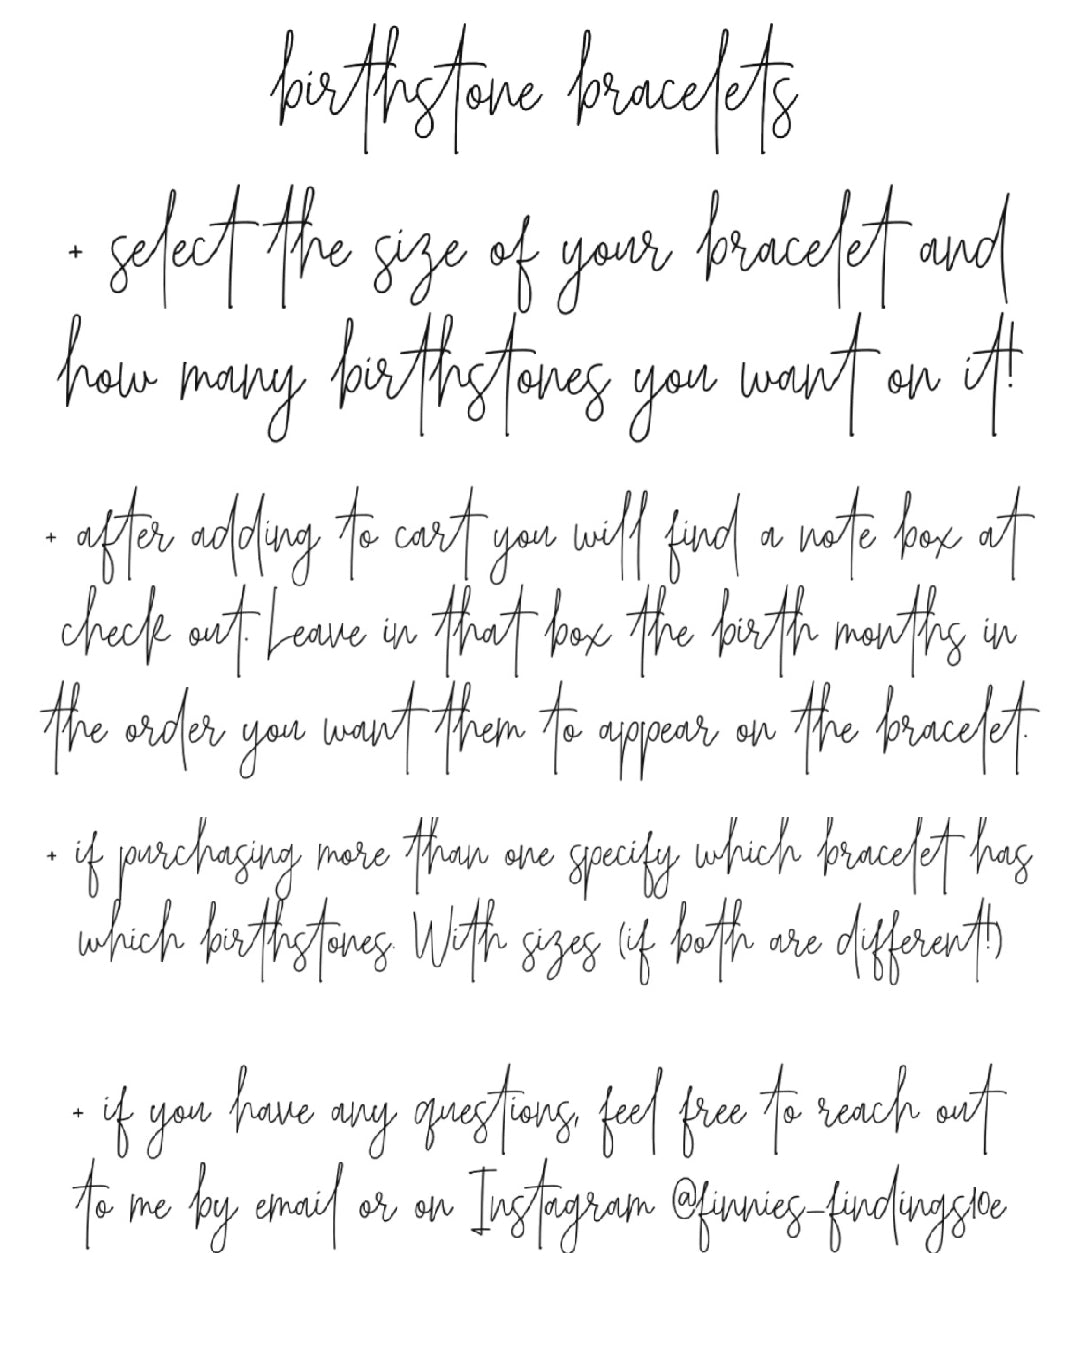 birthstone bracelets
+ select the size of your bracelet and
how many birthstones you want on it!
+ after adding to cart you will find a note box at
check out. Leave in that box the birth months in
the order you want them to appear on the bracelet.
+ if purchasing more than one specify which bracelet has
which birthstones. With sizes (if both are different!)
+ if you have any questions, feel free to reach out
to me by email or on Instagram @finnies_findings10e